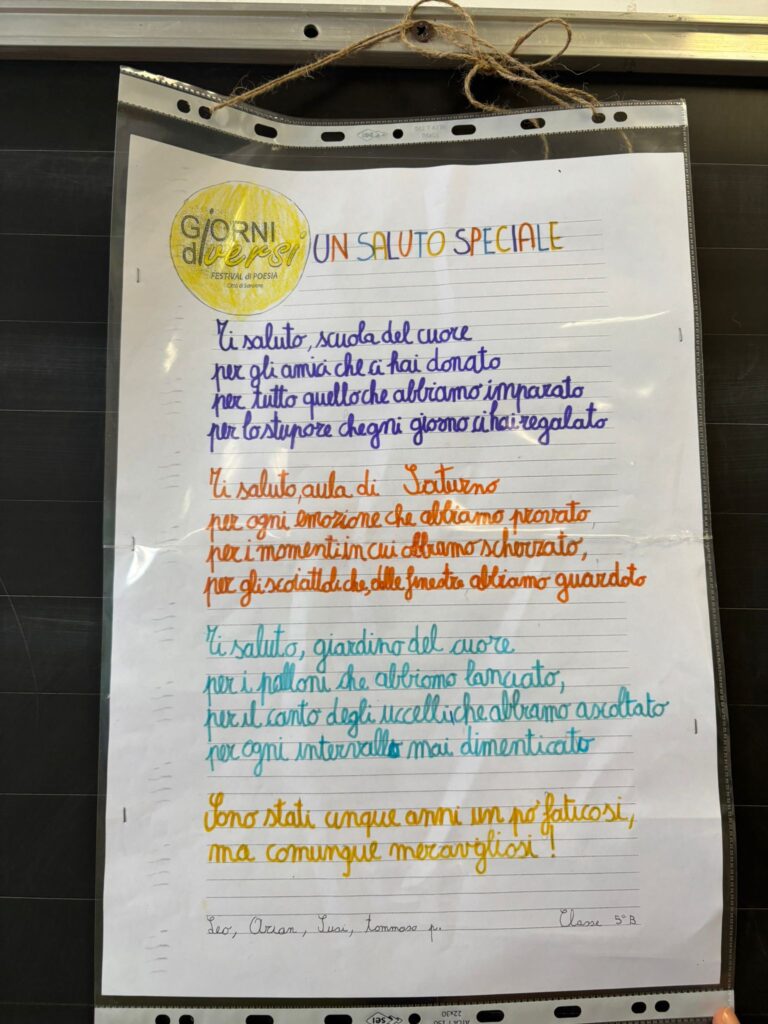 GiORNI
diversi
FESTIVAL di POESIA
Città di Saronno
UN SALUTO SPECIALE
Ti saluto, scuola del cuore
per gli amici che ci hai donato
per tutto quello che abbiamo imparato
per lo stupore chegni giorno ci hai regalato
Ti saluto, aula di Saturno
per ogni emozione che abbiamo provato,
per i momenti in cui abbiamo scherzato,
per gli scoiattoli che, dalle finestre abbiamo guardato
Ti saluto, giardino del cuore
per i palloni che abbiamo lanciato,
per il canto degli uccelli che abbiamo ascoltato
per ogni intervallo mai dimenticato
Sono stati cinque anni un po' faticosi,
ma comunque meravigliosi!
Leo, Arian, Susi, Tommaso p. Classe 5°B
22x30